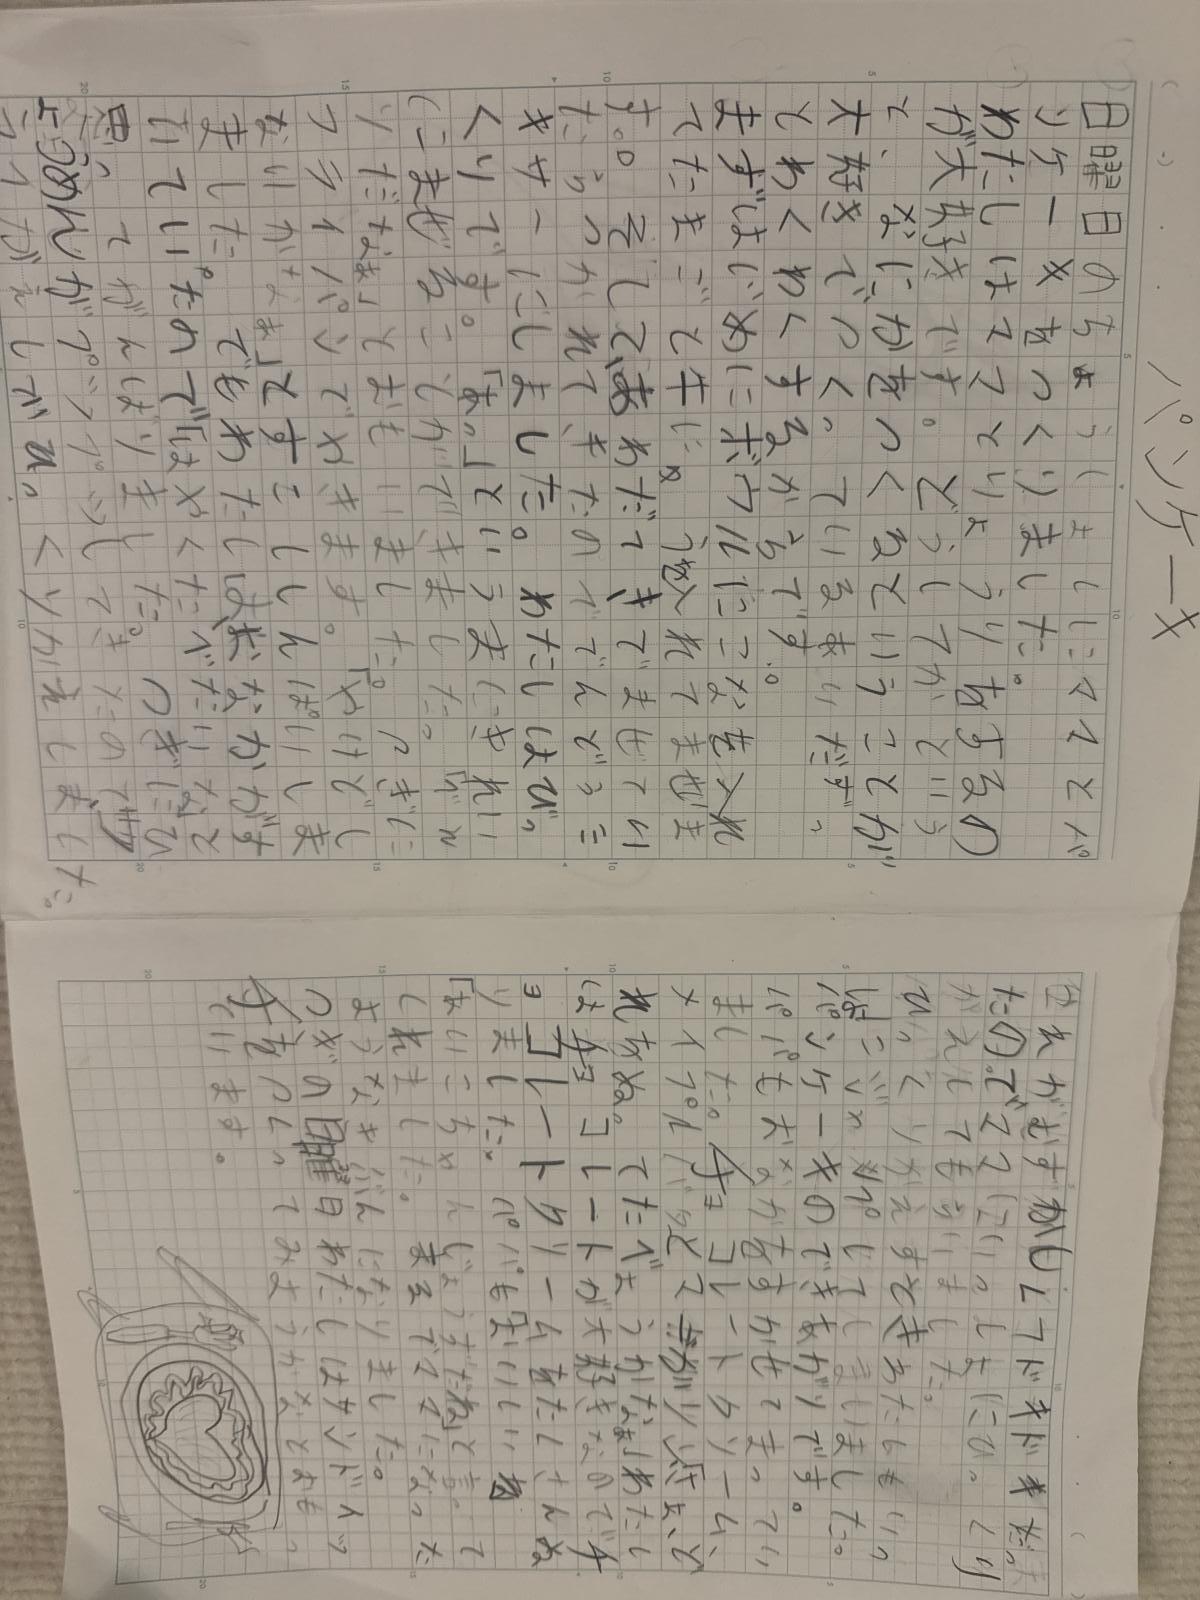 パンケーキ
日曜日のちょうしょくにママとパ
ンケーキをつくりました。
わたしはママとりょうりをするの
が大好きです。どうしてかという
と、なにかをつくるということが
大好きでつくっているあいだずっ
とわくわくするからです。
まずはじめにボウルにこなを入れ
てたまごと牛にゅう入れてまぜま
す。そしてあわだてきでまぜてい
たらつかれてきたのででんどうミ
キサーにしました。わたしはびっ
くりです。「あっ」というまにきれい
にまぜることができました。「べん
りだなぁ」とおもいました。つぎに
フライパンでやきます。「やけどし
ないかなぁ」とすこししんぱいしま
した。でもわたしはおなかがす
いていたので「はやくたべたいな」と
思ってがんばりました。つぎにひ
ょうめんがプツプツしてきたので
フライがえしでひっくりかえしました。
われがおすかしてドキドキだっ
たのでママにいっしょにひっくり
かえしてもらいました。
ひっくりかえすときわたしもいっ
しょにジャンプしてしまいました。
パンケーキのできあがりです。
パパもおなかをすかせてまってい
ました。チョコレートクリーム、
メイプルバターとぜんぶよくと
れをぬってたべようかな。わたし
はチョコレートが大好きなのでチ
ョコレートクリームをたくさんぬ
りました。パパも「おいしいね
「おにいちゃんじょうずだね」と言って
くれました。まるでママになった
ようなきぶんになりました。
つぎの日曜日わたしはサンドイッ
チをつくってみようかなとおも
っています。